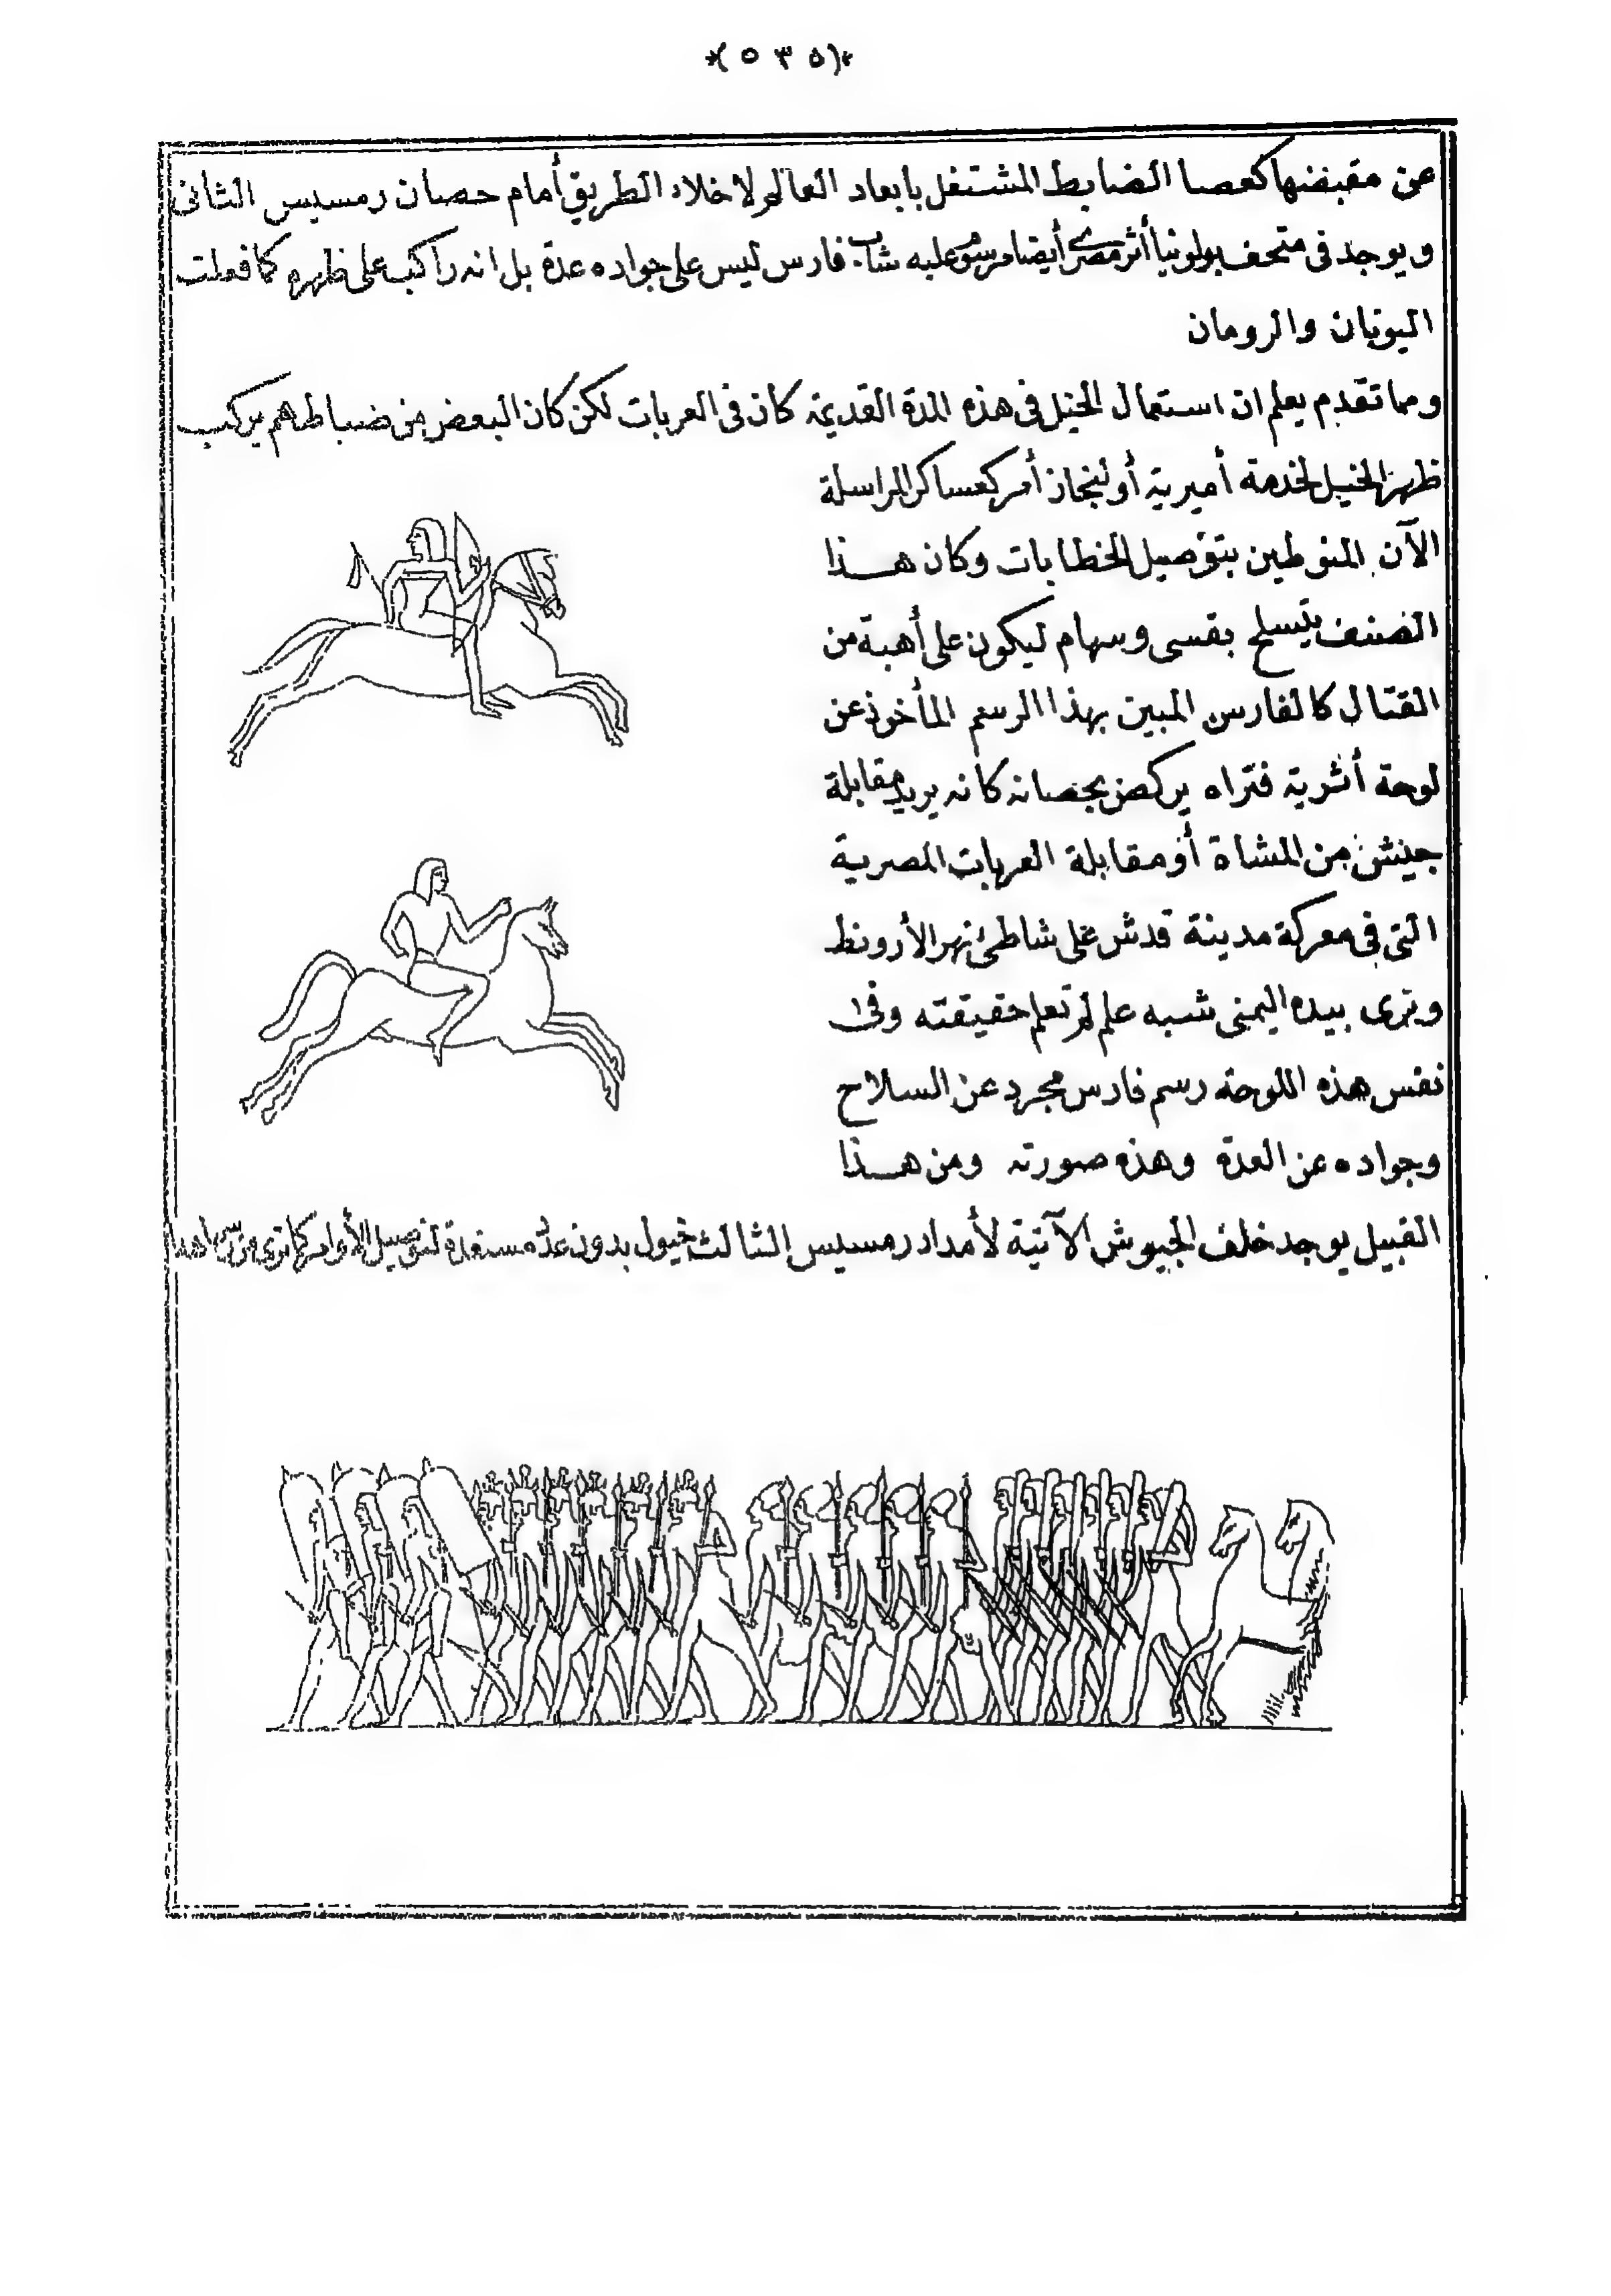 *(٥٣٥)*
عن مقبضها كعصا الضابط المشتغل بابعاد العالم لاخلاء الطريق أمام حصان رمسيس الثانى
ويوجد فى متحف بولونيا أثر مصرى أيضا مرسوم عليه شاب فارس ليس على جواده عدة بل انه راكب على ظهره كما فعلت
اليونان والرومان
ومما تقدم يعلم ان استعمال الخيل فى هذه المدة القديمة كان فى العربات لكن كان البعض من ضباطهم يركب
ظهر الخيل لخدمة أميرية أو لنجاز أمر كعساكر المراسلة
الآن المنوطين بتوصيل الخطابات وكان هذا
الصنف يتسلح بقسى وسهام ليكون على أهبة من
القتال كالفارس المبين بهذا الرسم المأخوذ عن
لوحة أثرية فتراه يركض بحصانه كانه يريد مقابلة
جيش من المشاة أو مقابلة العربات المصرية
التى فى معركة مدينة قدش على شاطئ نهر الأرونط
وترى بيده اليمنى شبه علم لم تعلم حقيقته وفى
نفس هذه اللوحة رسم فارس مجرد عن السلاح
وجواده عن العدة وهذه صورته ومن هذا
القبيل يوجد خلف الجيوش الآتية لأمداد رمسيس الثالث خيول بدون عدة مستعدة لتوصيل الأوامر كما ترى من